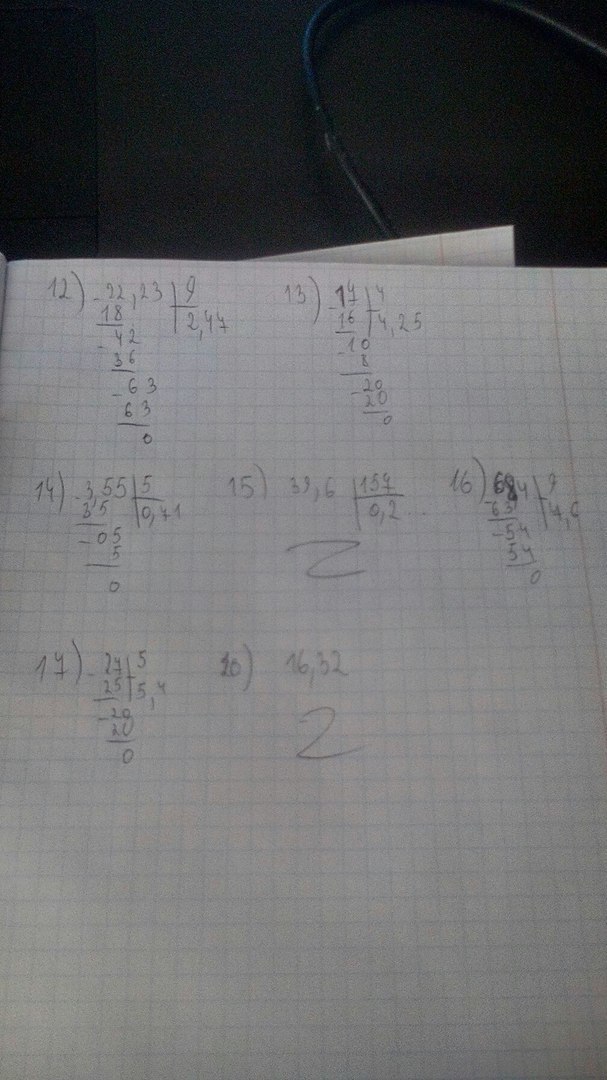 12) -22,23 | 9
18 | 2,47
-42
36
-63
63
0
13) -17 | 4
16 | 4,25
-10
8
-20
20
0
14) -3,55 | 5
35 | 0,71
-05
5
0
15) 39,6 | 157
0,2...
16) 68,4 | 9
-63 | 7,6
-54
54
0
17) -27 | 5
25 | 5,4
-20
20
0
20) 16,32